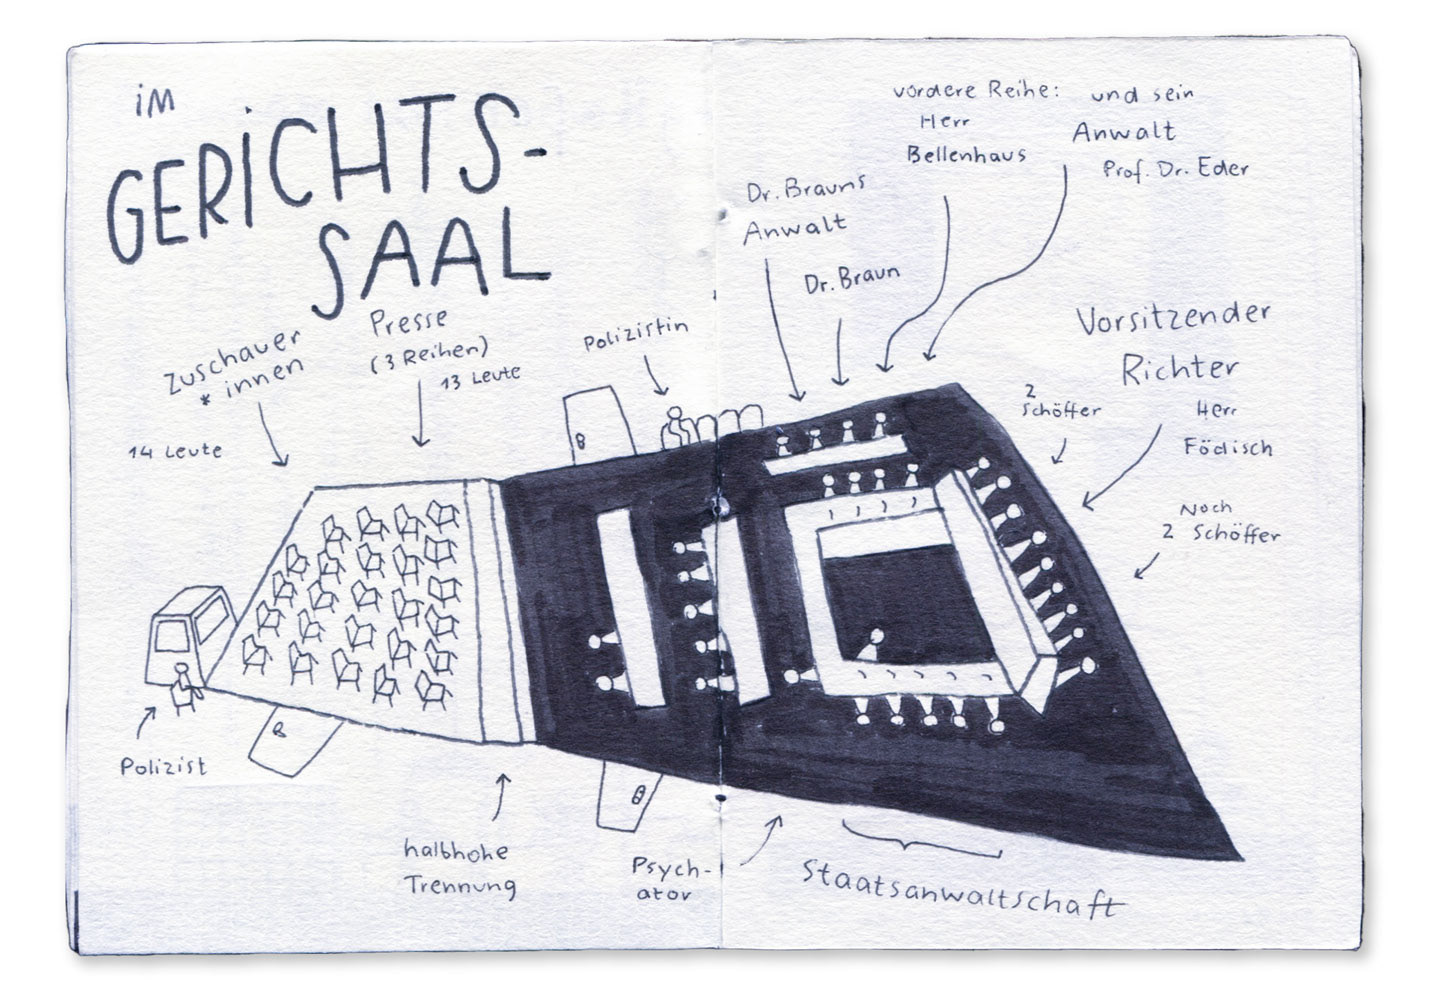 iM
GERiCHTS-
SAAL
Zuschauer
*innen
14 Leute
Presse
(3 Reihen)
13 Leute
Polizistin
Dr. Brauns
Anwalt
Dr. Braun
vordere Reihe:
Herr
Bellenhaus
und sein
Anwalt
Prof. Dr. Eder
Vorsitzender
Richter
Herr
Födisch
2
Schöffer
Noch
2 Schöffer
Polizist
halbhohe
Trennung
Psych-
ator
Staatsanwaltschaft